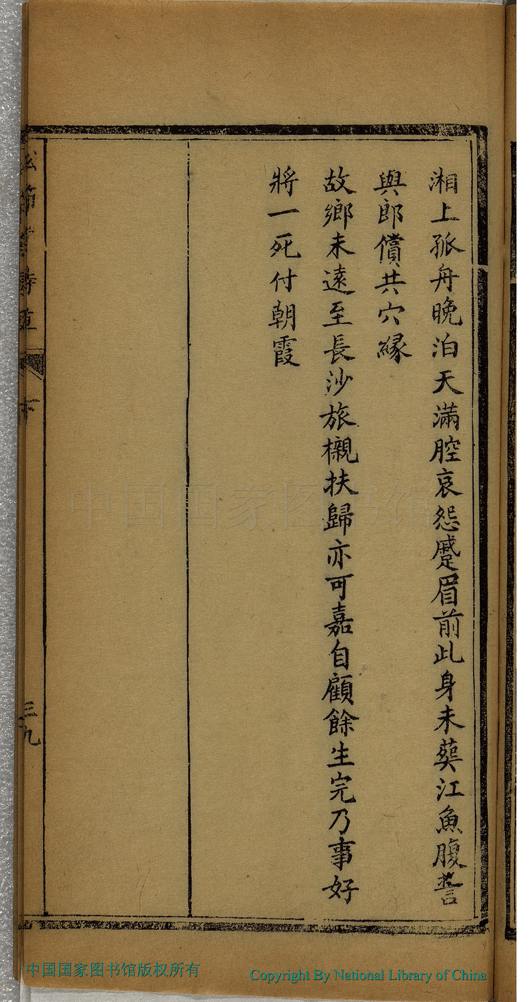 湘上孤舟晚泊天滿腔哀怨蹙眉前此身未葬江魚腹誓
與郎償共穴緣
故鄉未遠至長沙旅櫬扶歸亦可嘉自顧餘生完乃事好
將一死付朝霞
三九
中国国家图书馆
中国国家图书馆版权所有
Copyright By National Library of China